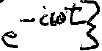 e^{-iωt}}